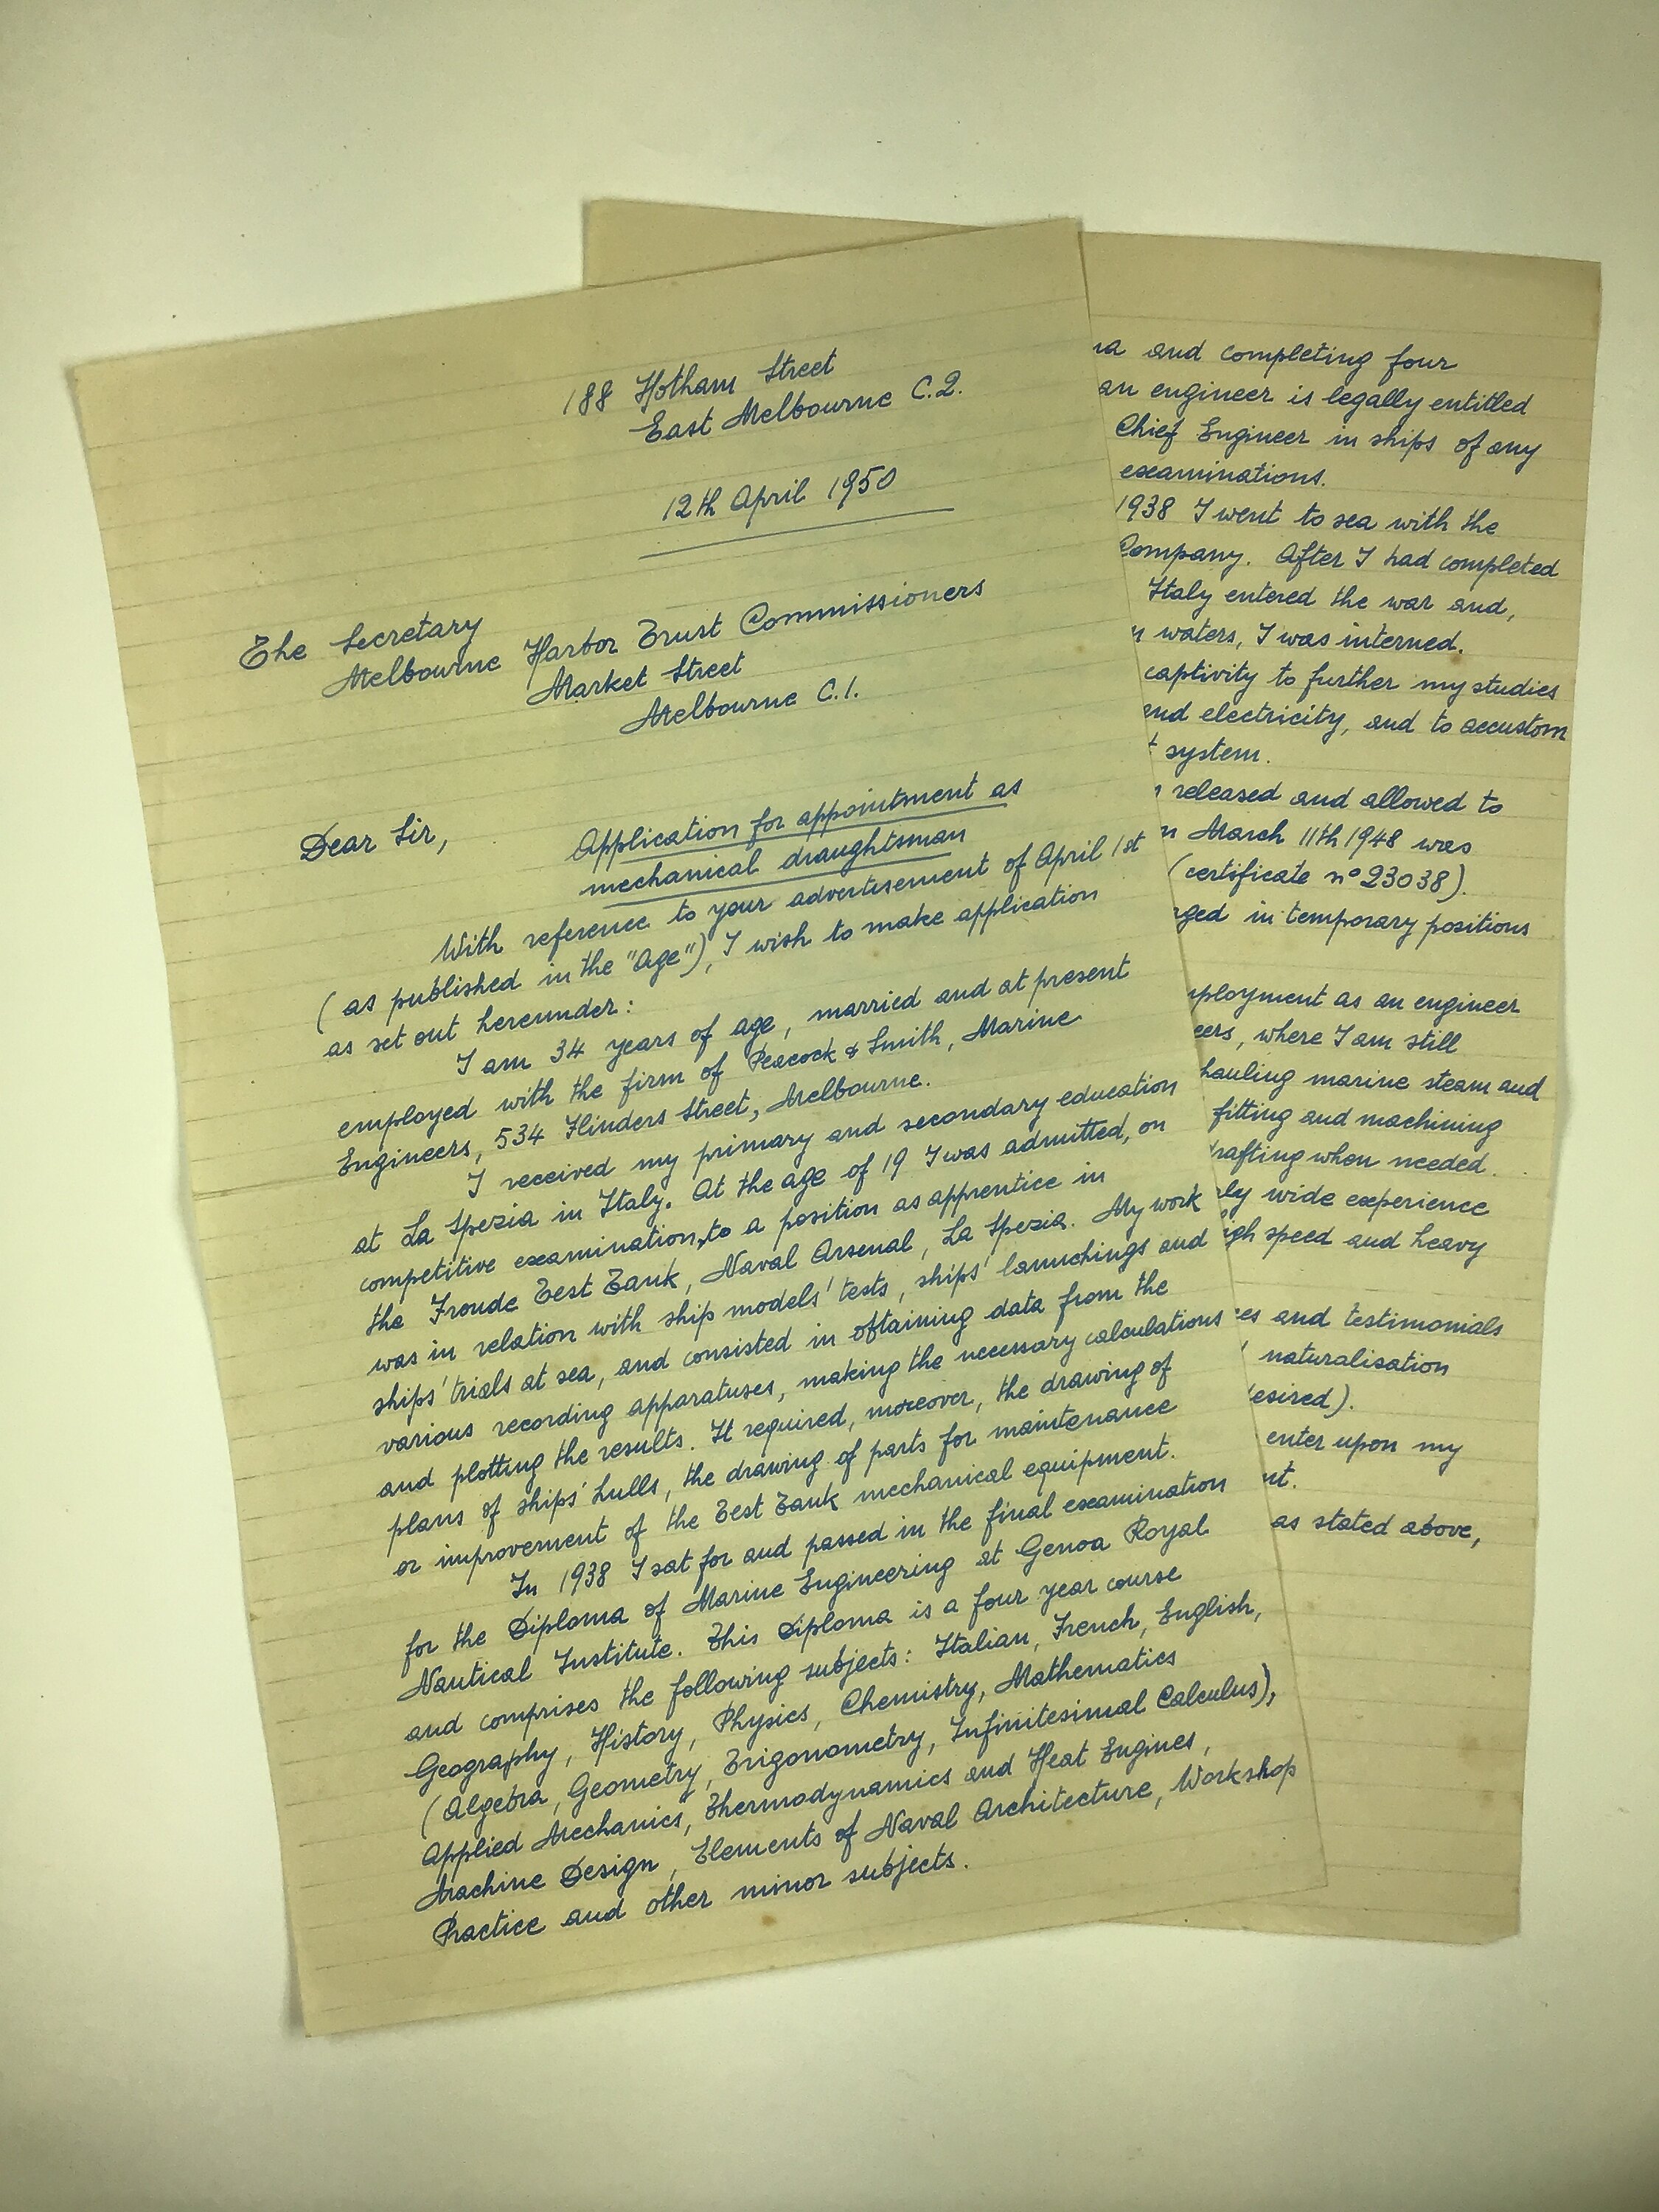 188 Hotham Street
East Melbourne C.2.
12th April 1950
The Secretary
Melbourne Harbor Trust Commissioners
Market Street
Melbourne C.1.
Dear Sir,
Application for appointment as
mechanical draughtsman
With reference to your advertisement of April 1st
(as published in the "Age"), I wish to make application
as set out hereunder:
I am 34 years of age, married and at present
employed with the firm of Peacock & Smith, Marine
Engineers, 534 Flinders Street, Melbourne.
I received my primary and secondary education
at La Spezia in Italy. At the age of 19 I was admitted, on
competitive examination, to a position as apprentice in
the Froude Test Tank, Naval Arsenal, La Spezia. My work
was in relation with ship models' tests, ships' launchings and
ships' trials at sea, and consisted in obtaining data from the
various recording apparatuses, making the necessary calculations
and plotting the results. It required, moreover, the drawing of
plans of ships' hulls, the drawing of parts for maintenance
or improvement of the Test Tank mechanical equipment.
In 1938 I sat for and passed in the final examination
for the Diploma of Marine Engineering at Genoa Royal
Nautical Institute. This Diploma is a four year course
and comprises the following subjects: Italian, French, English,
Geography, History, Physics, Chemistry, Mathematics
(Algebra, Geometry, Trigonometry, Infinitesimal Calculus),
Applied Mechanics, Thermodynamics and Heat Engines,
Machine Design, Elements of Naval Architecture, Workshop
Practice and other minor subjects.
and completing four
an engineer is legally entitled
Chief Engineer in ships of any
examinations.
1938 I went to sea with the
Company. After I had completed
Italy entered the war and,
waters, I was interned.
captivity to further my studies
and electricity, and to accustom
system.
released and allowed to
March 11th 1948 was
(certificate nº 23038).
in temporary positions
employment as an engineer
where I am still
hauling marine steam and
fitting and machining
drafting when needed.
wide experience
high speed and heavy
and testimonials
naturalisation
desired).
enter upon my
as stated above,